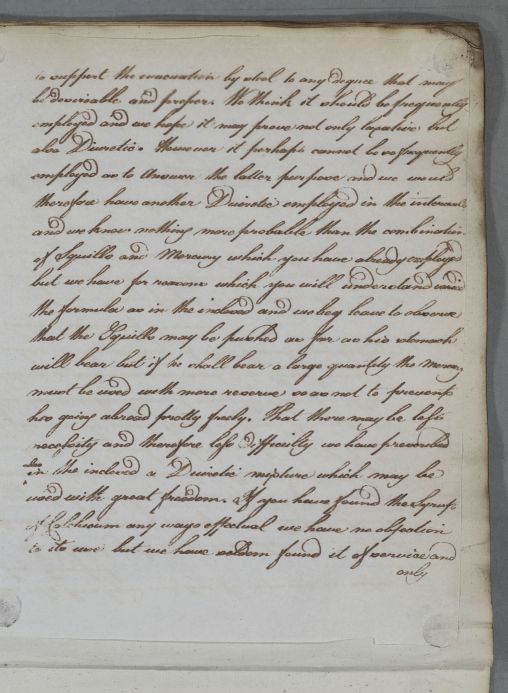 to support the evacuation by stool to any degree that may
be desirable and proper. We think it should be frequently
employed and we hope it may prove not only laxative but
also Diuretic. However it perhaps cannot be so frequently
employed as to answer the latter purpose and we would
therefore have another Diuretic employed in the intervals
and we know nothing more probable than the combination
of Squills and Mercury which you have already employed
but we have for reasons which you will understand varied
the formula as in the inclosed and we beg leave to observe
that the Squills may be pushed as far as his stomach
will bear but if he shall bear a large quantity the Mercury
must be used with more reserve so as not to prevent
his going abroad pretty freely. That there may be less
necessity and therefore less difficulty we have prescribed
in the inclosed a Diuretic mixture which may be
used with great freedom. If you have found the Syrup
of Colchicum any ways effectual we have no objection
to its use but we have seldom found it of service and
only